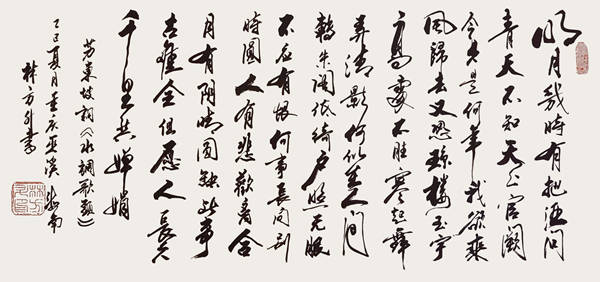 明月幾時有把酒問
青天不知天上宫闕
今夕是何年我欲乘
風歸去又恐瓊樓玉宇
高處不勝寒起舞
弄清影何似在人间
轉朱阁低绮户照无眠
不应有恨何事長向别
時圆人有悲歡离合
月有阴晴圆缺此事
古難全但愿人長久
千里共婵娟
苏東坡词《水調歌頭》
乙巳夏月重庆巫溪海南
林方書